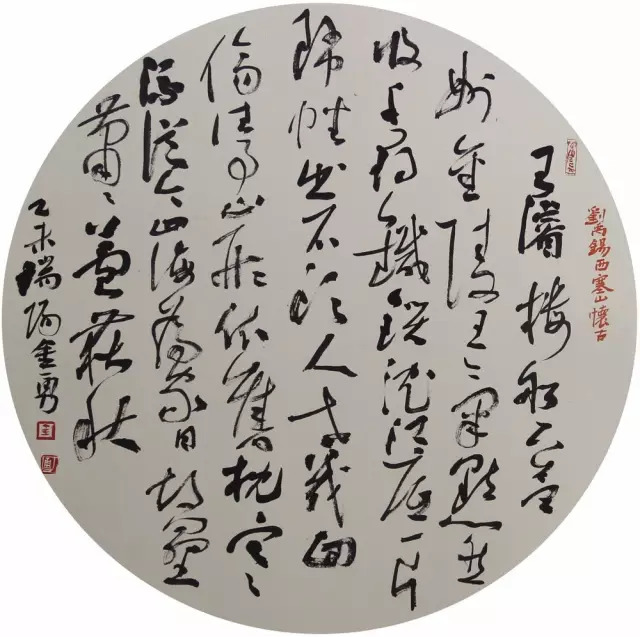 劉禹錫西塞山懷古
王濬樓船下益
州金陵王氣黯然
收千尋鐵鎖沉江底一片
降幡出石頭人世幾回
傷往事山形依舊枕寒
流從今四海為家日故壘
蕭々蘆荻秋
乙未瑞陽金勇